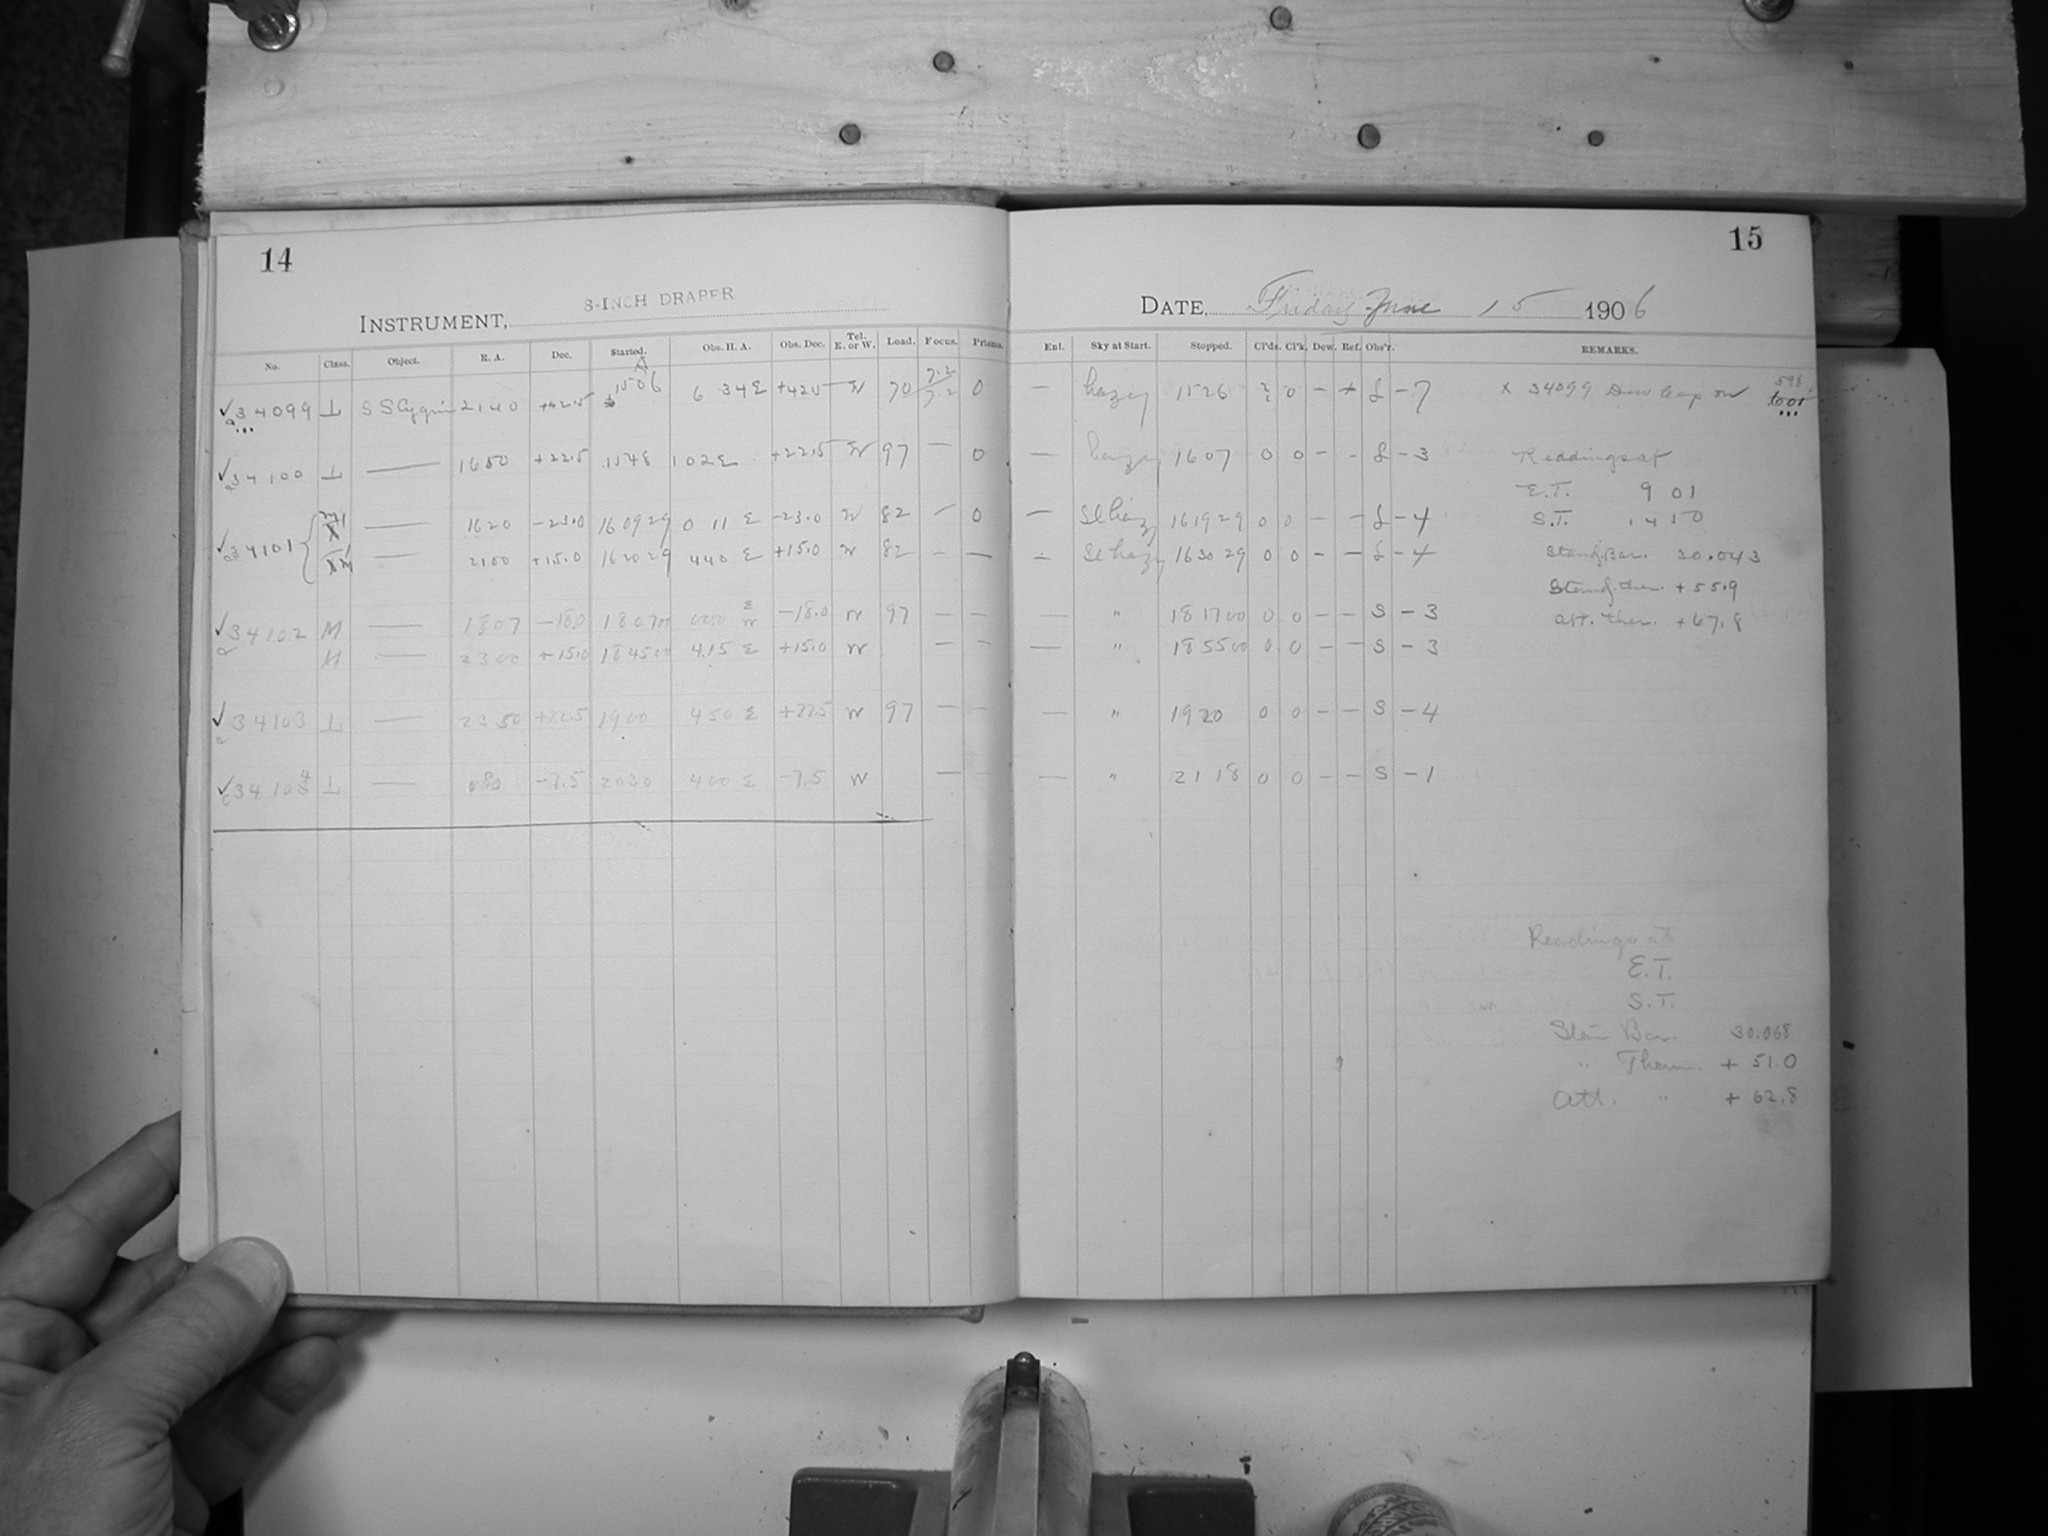 14
8-INCH DRAPER
INSTRUMENT,
No. Class. Object. R. A. Dec. Started. Obs. H. A. Obs. Dec. Tel. E. or W. Load. Focus. Prisms.
34099 L SS Cygni 2140 +42.5 1506 6 34 E +42.5 W 70 7.2 0
34100 L — 1650 +22.5 1548 1 02 E +22.5 W 97 — 0
34101 — 1620 -23.0 160929 0 11 E -23.0 W 82 — 0
— 2100 +15.0 162029 4 40 E +15.0 W 82 - —
34102 M — 1807 -18.0 180700 000 E W -18.0 W 97 — —
M — 2300 +15.0 184500 4.15 E +15.0 W — —
34103 L — 2350 +22.5 1900 450 E +22.5 W 97 — —
34104 L — -7.5 2020 400 E -7.5 W — —
15
DATE, Friday June 15 1906
Ent. Sky at Start. Stopped. Cl'ds. Cl'k. Dew. Ref. Obs'r. REMARKS.
— hazy 1526 2 0 — L -7 x 34099 Dew cap on 598
— hazy 1607 0 0 - - L -3 Readings at
E.T. 9 01
— Sl hazy 161929 0 0 — — L -4 S.T. 1450
— Sl hazy 163029 0 0 — — L -4 Stand. Bar. 30.043
Stand. ther. +55.9
— " 181700 0 0 — — S -3 att. ther. +67.8
— " 185500 0 0 — — S -3
— " 1920 0 0 — — S -4
— " 2118 0 0 — — S -1
Readings at
E.T.
S.T.
Stan Bar. 30.068
" Therm. + 51.0
Att. " + 62.8